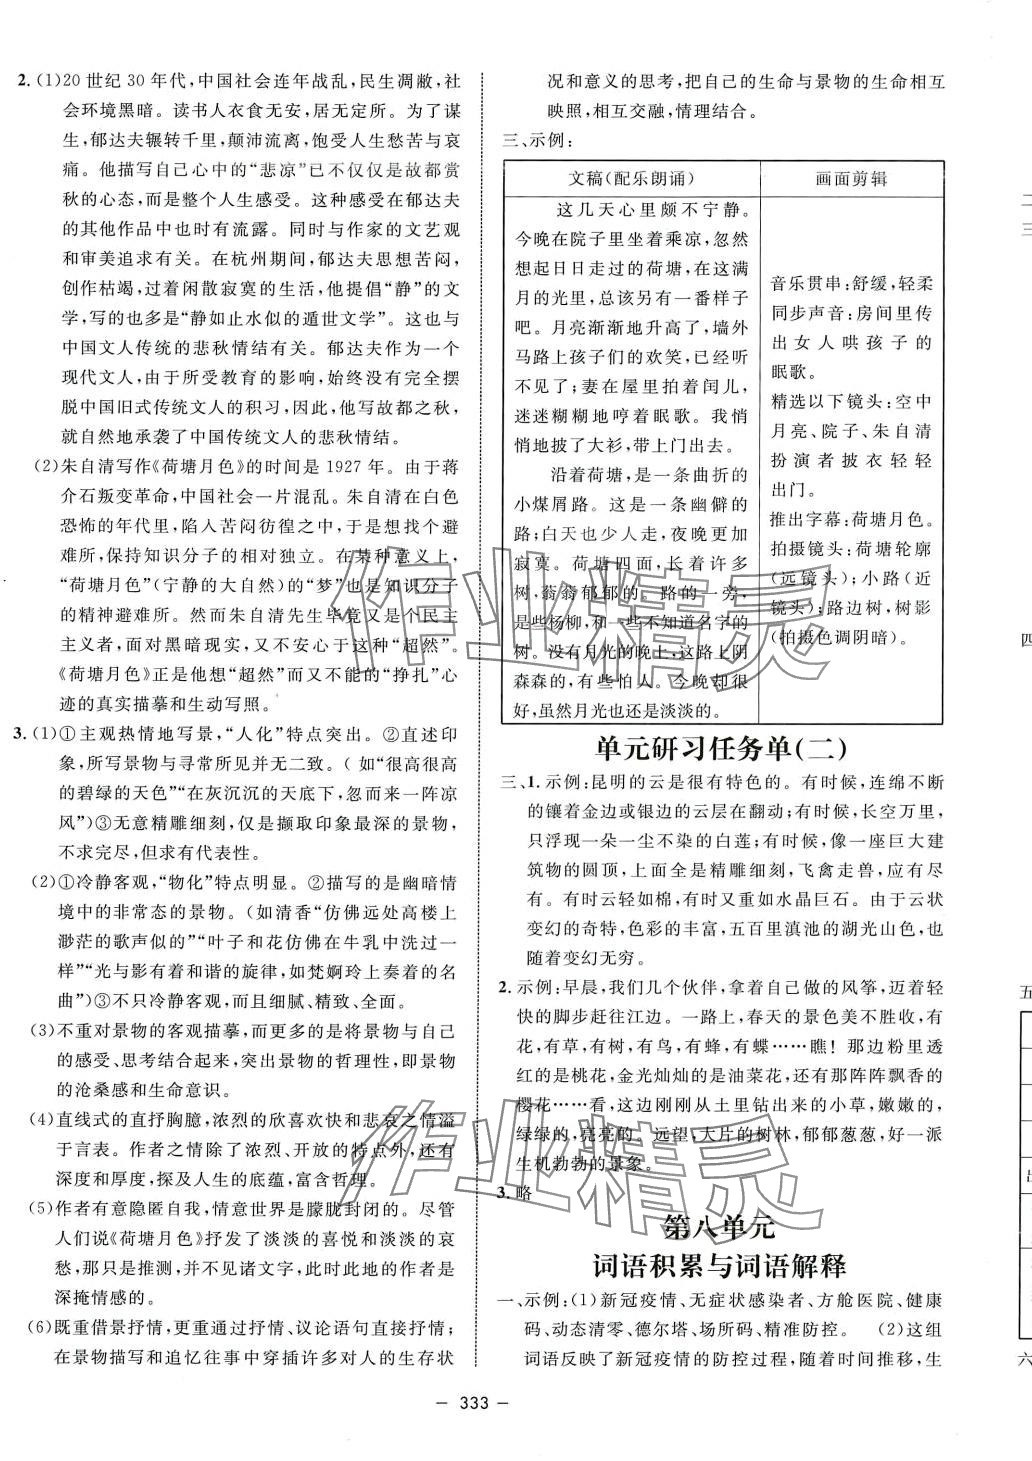 2. (1)20世纪30年代,中国社会连年战乱,民生凋敝,社
会环境黑暗。读书人衣食无安,居无定所。为了谋
生,郁达夫辗转千里,颠沛流离,饱受人生愁苦与哀
痛。他描写自己心中的“悲凉”已不仅仅是故都赏
秋的心态,而是整个人生感受。这种感受在郁达夫
的其他作品中也时有流露。同时与作家的文艺观
和审美追求有关。在杭州期间,郁达夫思想苦闷,
创作枯竭,过着闲散寂寞的生活,他提倡“静”的文
学,写的也多是“静如止水似的遁世文学”。这也与
中国文人传统的悲秋情结有关。郁达夫作为一个
现代文人,由于所受教育的影响,始终没有完全摆
脱中国旧式传统文人的积习,因此,他写故都之秋,
就自然地承袭了中国传统文人的悲秋情结。
(2)朱自清写作《荷塘月色》的时间是1927年。由于蒋
介石叛变革命,中国社会一片混乱。朱自清在白色
恐怖的年代里,陷入苦闷彷徨之中,于是想找个避
难所,保持知识分子的相对独立。在某种意义上,
“荷塘月色”(宁静的大自然)的“梦”也是知识分子
的精神避难所。然而朱自清先生毕竟又是个民主
主义者,面对黑暗现实,又不能安于这种“超然”。
《荷塘月色》正是他想“超然”而又不能的“挣扎”心
迹的真实描摹和生动写照。
3. (1)①主观热情地写景,“人化”特点突出。②直述印
象,所写景物与寻常所见并无二致。(如“很高很高
的碧绿的天色”“在灰沉沉的天底下,忽而来一阵凉
风”)③无意精雕细刻,仅是撷取印象最深的景物,
不求完尽,但求有代表性。
(2)①冷静客观,“物化”特点明显。②描写的是幽暗情
境中的非常态的景物。(如清香“仿佛远处高楼上
渺茫的歌声似的”“叶子和花仿佛在牛乳中洗过一
样”“光与影有着和谐的旋律,如梵婀玲上奏着的名
曲”)③不只冷静客观,而且细腻、精致、全面。
(3)不重对景物的客观描摹,而更多的是将景物与自己
的感受、思考结合起来,突出景物的哲理性,即景物
的沧桑感和生命意识。
(4)直线式的直抒胸臆,浓烈的欣喜欢快和悲哀之情溢
于言表。作者之情除了浓烈、开放的特点外,还有
深度和厚度,探及人生的底蕴,富含哲理。
(5)作者有意隐匿自我,情意世界是朦胧封闭的。尽管
人们说《荷塘月色》抒发了淡淡的喜悦和淡淡的哀
愁,那只是推测,并不见诸文字,此时此地的作者是
深掩情感的。
(6)既重借景抒情,更重通过抒情、议论语句直接抒情;
在景物描写和追忆往事中穿插许多对人的生存状
况和意义的思考,把自己的生命与景物的生命相互
映照,相互交融,情理结合。
三、示例:
文稿(配乐朗诵)
画面剪辑
这几天心里颇不宁静。
今晚在院子里坐着乘凉,忽然
想起日日走过的荷塘,在这满
月的光里,总该另有一番样子
吧。月亮渐渐地升高了,墙外
马路上孩子们的欢笑,已经听
不见了;妻在屋里拍着闰儿,
迷迷糊糊地哼着眠歌。我悄
悄地披了大衫,带上门出去。
沿着荷塘,是一条曲折的
小煤屑路。这是一条幽僻的
路;白天也少人走,夜晚更加
寂寞。荷塘四面,长着许多
树,蓊蓊郁郁的。路的一旁,
是些杨柳,和一些不知道名字的
树。没有月光的晚上,这路上阴
森森的,有些怕人。今晚却很
好,虽然月光也还是淡淡的。
音乐贯串:舒缓,轻柔
同步声音:房间里传
出女人哄孩子的
眠歌。
精选以下镜头:空中
月亮、院子、朱自清
扮演者披衣轻轻
出门。
推出字幕:荷塘月色。
拍摄镜头:荷塘轮廓
(远镜头);小路(近
镜头);路边树,树影
(拍摄色调阴暗)。
单元研习任务单(二)
三、1. 示例:昆明的云是很有特色的。有时候,连绵不断
的镶着金边或银边的云层在翻动;有时候,长空万里,
只浮现一朵一尘不染的白莲;有时候,像一座巨大建
筑物的圆顶,上面全是精雕细刻,飞禽走兽,人物花
卉。有时云轻如棉,有时又重如水晶巨石。由于云状
变幻的奇特,色彩的丰富,五百里滇池的湖光山色,也
随着变幻无穷。
2. 示例:早晨,我们几个伙伴,拿着自己做的风筝,迈着轻
快的脚步赶往江边。一路上,春天的景色美不胜收,有
花,有草,有树,有鸟,有蜂,有蝶……瞧!那边粉里透
红的是桃花,金光灿灿的是油菜花,还有那阵阵飘香的
樱花……看,这边刚刚从土里钻出来的小草,嫩嫩的,
绿绿的,亮亮的。远望,大片的树林,郁郁葱葱,好一派
生机勃勃的景象。
3. 略
第八单元
词语积累与词语解释
一、示例:(1)新冠疫情、无症状感染者、方舱医院、健康
码、动态清零、德尔塔、场所码、精准防控。 (2)这组
词语反映了新冠疫情的防控过程,随着时间推移,生
— 333 —
二
三
四
五
出
六
作业精灵
作业精灵